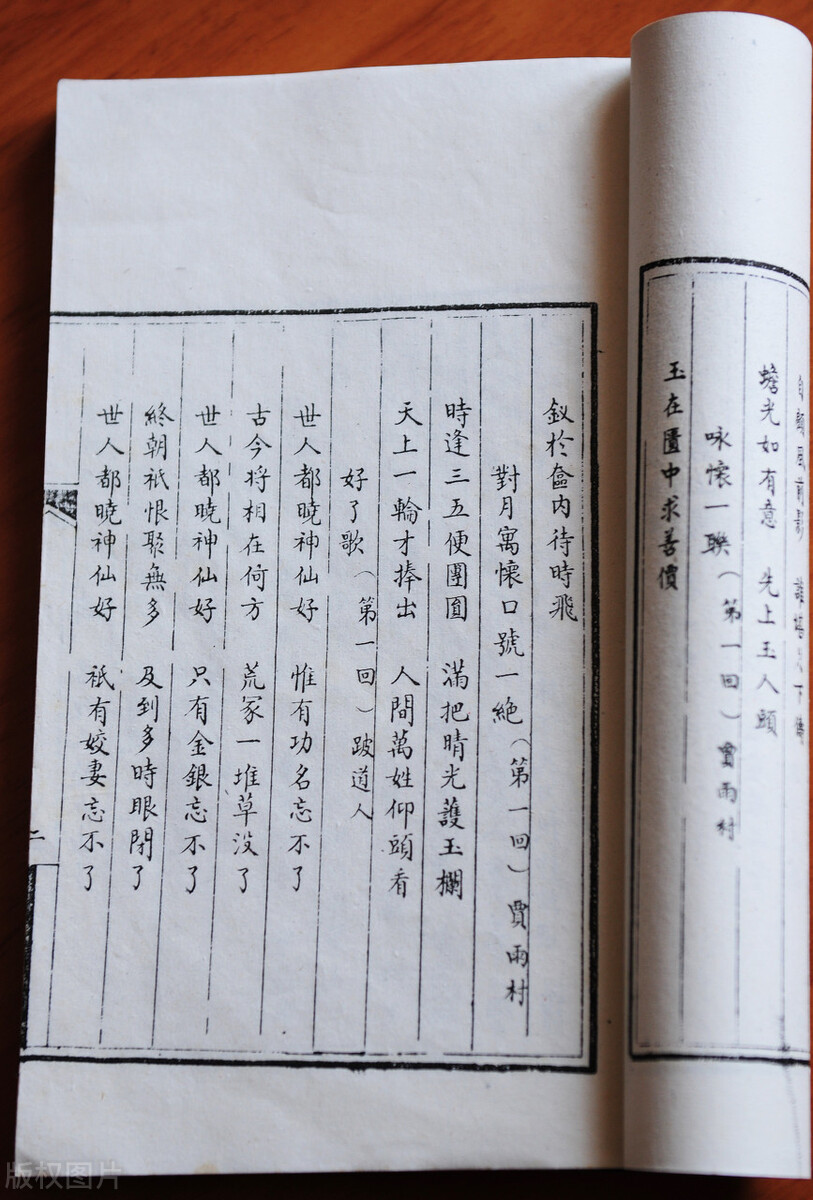 蟾光如有意　先上玉人頭
咏懷一聯（第一回）賈雨村
玉在匱中求善價
釵於奩內待時飛
對月寓懷口號一絕（第一回）賈雨村
時逢三五便團圓　滿把晴光護玉欄
天上一輪才捧出　人間萬姓仰頭看
好了歌（第一回）跛道人
世人都曉神仙好　惟有功名忘不了
古今将相在何方　荒冢一堆草没了
世人都曉神仙好　只有金銀忘不了
終朝祇恨聚無多　及到多時眼閉了
世人都曉神仙好　祇有姣妻忘不了
二
版权图片